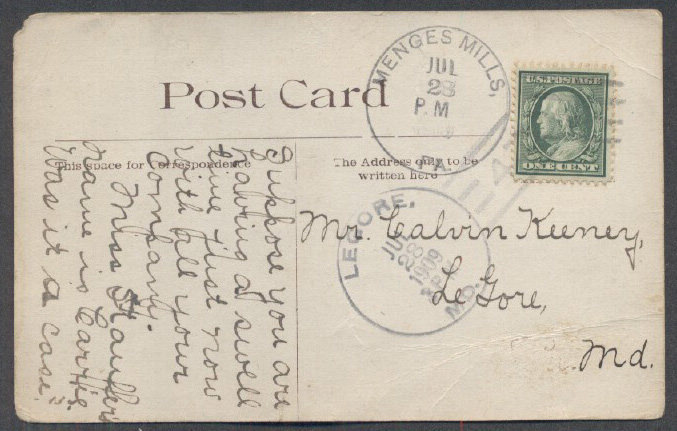 Post Card
MENGES MILLS,
JUL
28
P.M
PA.
U.S. POSTAGE
ONE CENT
This space for Correspondence
The Address only to be
written here
Suppose you are
having a swell
time just now
with all your
Company.
Miss Stauffer's
name is Carrie
Was it a case.
LEGORE,
JUL
28
1909
MD.
Mr. Calvin Keeney,
LeGore,
Md.